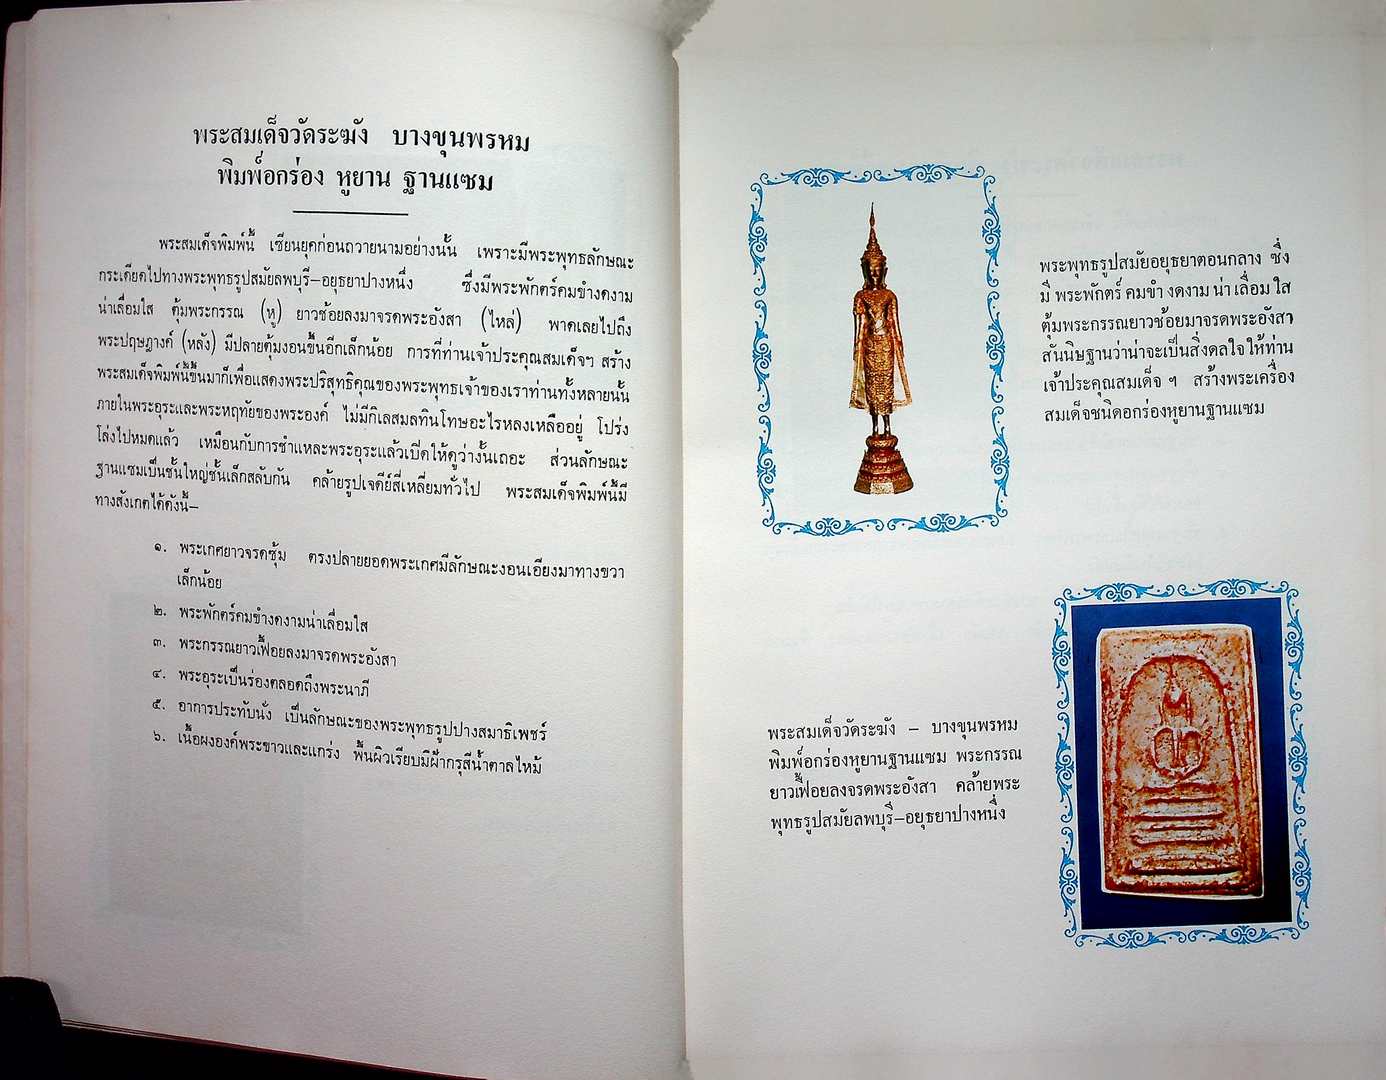 พระสมเด็จวัดระฆัง บางขุนพรหม
พิมพ์อกร่อง หูยาน ฐานแซม
พระสมเด็จพิมพ์นี้ เซียนยุคก่อนถวายนามอย่างนั้น เพราะมีพระพุทธลักษณะ
กระเดียดไปทางพระพุทธรูปสมัยลพบุรี–อยุธยาปางหนึ่ง ซึ่งมีพระพักตร์คมขำงดงาม
น่าเลื่อมใส ตุ้มพระกรรณ (หู) ยาวช้อยลงมาจรดพระอังสา (ไหล่) พาดเลยไปถึง
พระปฤษฎางค์ (หลัง) มีปลายตุ้มงอนขึ้นอีกเล็กน้อย การที่ท่านเจ้าประคุณสมเด็จฯ สร้าง
พระสมเด็จพิมพ์นี้ขึ้นมาก็เพื่อแสดงพระปริสุทธิคุณของพระพุทธเจ้าของเราท่านทั้งหลายนั้น
ภายในพระอุระและพระหฤทัยของพระองค์ ไม่มีกิเลสมลทินโทษอะไรหลงเหลืออยู่ โปร่ง
โล่งไปหมดแล้ว เหมือนกับการชำแหละพระอุระแล้วเปิดให้ดูว่างั้นเถอะ ส่วนลักษณะ
ฐานแซมเป็นชั้นใหญ่ชั้นเล็กสลับกัน คล้ายรูปเจดีย์สี่เหลี่ยมทั่วไป พระสมเด็จพิมพ์นี้มี
ทางสังเกตได้ดังนี้–
๑. พระเกศยาวจรดซุ้ม ตรงปลายยอดพระเกศมีลักษณะงอนเอียงมาทางขวา
เล็กน้อย
๒. พระพักตร์คมขำงดงามน่าเลื่อมใส
๓. พระกรรณยาวเฟื้อยลงมาจรดพระอังสา
๔. พระอุระเป็นร่องตลอดถึงพระนาภี
๕. อาการประทับนั่ง เป็นลักษณะของพระพุทธรูปปางสมาธิเพชร์
๖. เนื้อผงองค์พระขาวและแกร่ง พื้นผิวเรียบมีฝ้ากรุสีน้ำตาลไหม้
พระพุทธรูปสมัยอยุธยาตอนกลาง ซึ่ง
มี พระพักตร์ คมขำ งดงาม น่า เลื่อม ใส
ตุ้มพระกรรณยาวช้อยมาจรดพระอังสา
สันนิษฐานว่าน่าจะเป็นสิ่งดลใจให้ท่าน
เจ้าประคุณสมเด็จ ฯ สร้างพระเครื่อง
สมเด็จชนิดอกร่องหูยานฐานแซม
พระสมเด็จวัดระฆัง – บางขุนพรหม
พิมพ์อกร่องหูยานฐานแซม พระกรรณ
ยาวเฟื้อยลงจรดพระอังสา คล้ายพระ
พุทธรูปสมัยลพบุรี–อยุธยาปางหนึ่ง